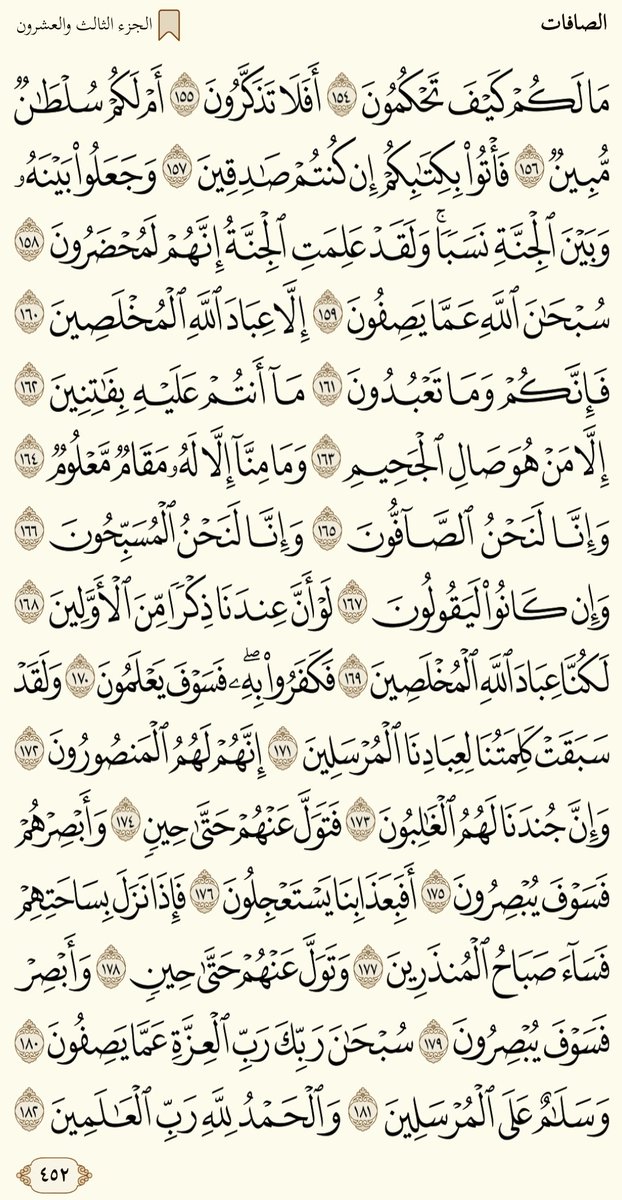 الصافات
الجزء الثالث والعشرون
مَا لَكُمْ كَيْفَ تَحْكُمُونَ ١٥٤ أَفَلَا تَذَكَّرُونَ ١٥٥ أَمْ لَكُمْ سُلْطَٰنٌ
مُّبِينٌ ١٥٦ فَأْتُوا۟ بِكِتَٰبِكُمْ إِن كُنتُمْ صَٰدِقِينَ ١٥٧ وَجَعَلُوا۟ بَيْنَهُۥ
وَبَيْنَ ٱلْجِنَّةِ نَسَبًا ۚ وَلَقَدْ عَلِمَتِ ٱلْجِنَّةُ إِنَّهُمْ لَمُحْضَرُونَ ١٥٨
سُبْحَٰنَ ٱللَّهِ عَمَّا يَصِفُونَ ١٥٩ إِلَّا عِبَادَ ٱللَّهِ ٱلْمُخْلَصِينَ ١٦٠
فَإِنَّكُمْ وَمَا تَعْبُدُونَ ١٦١ مَآ أَنتُمْ عَلَيْهِ بِفَٰتِنِينَ ١٦٢
إِلَّا مَنْ هُوَ صَالِ ٱلْجَحِيمِ ١٦٣ وَمَا مِنَّآ إِلَّا لَهُۥ مَقَامٌ مَّعْلُومٌ ١٦٤
وَإِنَّا لَنَحْنُ ٱلصَّآفُّونَ ١٦٥ وَإِنَّا لَنَحْنُ ٱلْمُسَبِّحُونَ ١٦٦
وَإِن كَانُوا۟ لَيَقُولُونَ ١٦٧ لَوْ أَنَّ عِندَنَا ذِكْرًا مِّنَ ٱلْأَوَّلِينَ ١٦٨
لَكُنَّا عِبَادَ ٱللَّهِ ٱلْمُخْلَصِينَ ١٦٩ فَكَفَرُوا۟ بِهِۦ ۖ فَسَوْفَ يَعْلَمُونَ ١٧٠ وَلَقَدْ
سَبَقَتْ كَلِمَتُنَا لِعِبَادِنَا ٱلْمُرْسَلِينَ ١٧١ إِنَّهُمْ لَهُمُ ٱلْمَنصُورُونَ ١٧٢
وَإِنَّ جُندَنَا لَهُمُ ٱلْغَٰلِبُونَ ١٧٣ فَتَوَلَّ عَنْهُمْ حَتَّىٰ حِينٍ ١٧٤ وَأَبْصِرْهُمْ
فَسَوْفَ يُبْصِرُونَ ١٧٥ أَفَبِعَذَابِنَا يَسْتَعْجِلُونَ ١٧٦ فَإِذَا نَزَلَ بِسَاحَتِهِمْ
فَسَآءَ صَبَاحُ ٱلْمُنذَرِينَ ١٧٧ وَتَوَلَّ عَنْهُمْ حَتَّىٰ حِينٍ ١٧٨ وَأَبْصِرْ
فَسَوْفَ يُبْصِرُونَ ١٧٩ سُبْحَٰنَ رَبِّكَ رَبِّ ٱلْعِزَّةِ عَمَّا يَصِفُونَ ١٨٠
وَسَلَٰمٌ عَلَى ٱلْمُرْسَلِينَ ١٨١ وَٱلْحَمْدُ لِلَّهِ رَبِّ ٱلْعَٰلَمِينَ ١٨٢
٤٥٢